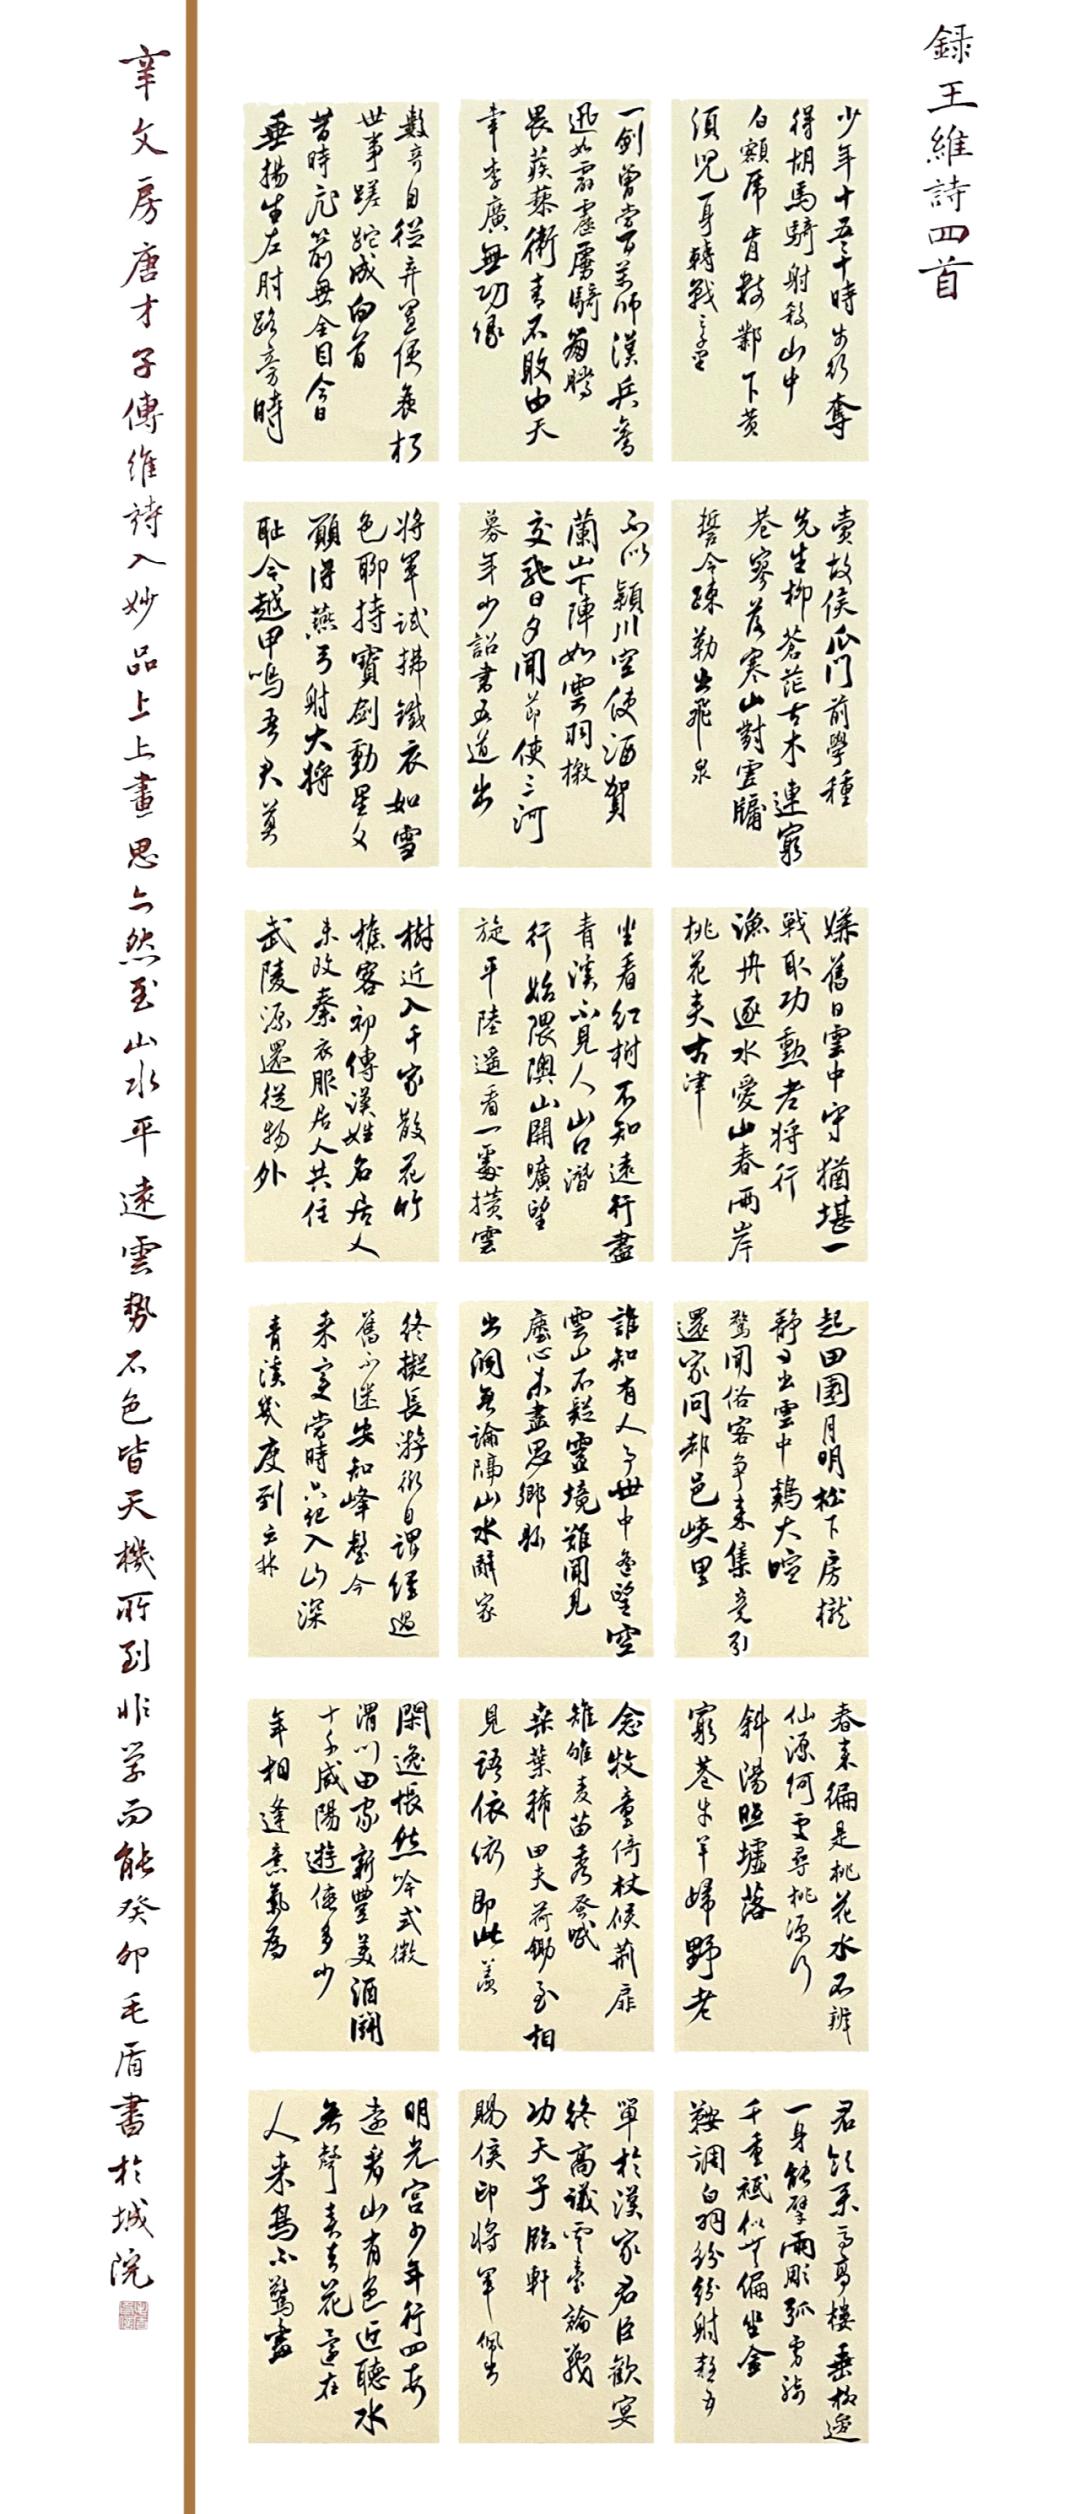 録王維詩四首
少年十五二十時步行奪
得胡馬騎射殺山中
白額虎肯數鄴下黃
須兒一身轉戰三千里
一劍曾當百萬師漢兵奮
迅如霹靂虜騎崩騰
畏蒺藜衛青不敗由天
幸李廣無功緣
數奇自從棄置便衰朽
世事蹉跎成白首
昔時飛箭無全目今日
垂楊生左肘路旁時
賣故侯瓜門前學種
先生柳蒼茫古木連窮
巷寥落寒山對虛牖
誓令疎勒出飛泉
不似潁川空使酒賀
蘭山下陣如雲羽檄
交馳日夕聞節使三河
募年少詔書五道出
將軍試拂鐵衣如雪
色聊持寶劍動星文
願得燕弓射大將
耻令越甲鳴吾君莫
嫌舊日雲中守猶堪一
戰取功勳老將行
漁舟逐水愛山春兩岸
桃花夾古津
坐看紅樹不知遠行盡
青溪不見人山口潛
行始隈隩山開曠望
旋平陸遥看一處攢雲
樹近入千家散花竹
樵客初傳漢姓名居人
未改秦衣服居人共住
武陵源還從物外
起田園月明松下房櫳
靜日出雲中鷄犬喧
驚聞俗客爭来集競引
還家問都邑峽里
誰知有人事世中遙望空
雲山不疑靈境難聞見
塵心未盡思鄉縣
出洞無論隔山水辭家
終擬長游衍自謂經過
舊不迷安知峰壑今
来變當時只記入山深
青溪幾度到雲林
春来徧是桃花水不辨
仙源何處尋桃源行
斜陽照墟落
窮巷牛羊歸野老
念牧童倚杖候荊扉
雉雊麥苗秀蠶眠
桑葉稀田夫荷鋤至相
見語依依即此羨
閑逸悵然吟式微
渭川田家新豐美酒鬭
十千咸陽遊俠多少
年相逢意氣為
君飲系馬高樓垂柳邊
一身能擘兩彫弧虜騎
千重祇似無偏坐金
鞍調白羽紛紛射殺五
單於漢家君臣歡宴
終高議雲臺論戰
功天子臨軒
賜侯印將軍佩出
明光宮少年行四首
遠看山有色近聽水
無聲春去花還在
人来鳥不驚畫
辛文房唐才子傳維詩入妙品上上畫思亦然至山水平遠雲勢石色皆天機所到非学而能癸卯毛盾書於城院